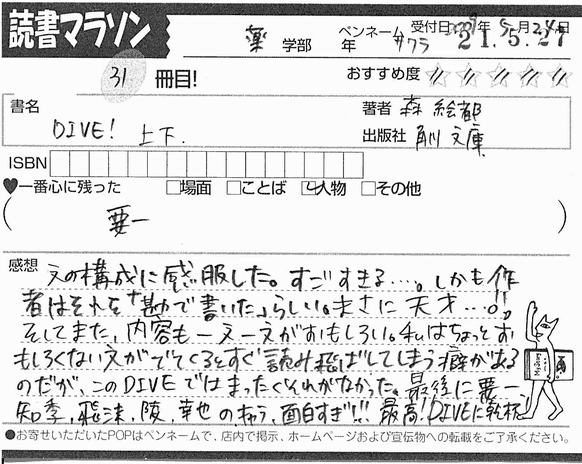 読書マラソン
薬 学部 年 ペンネーム サクラ 受付日 2009年5月24日
21.5.27
31 冊目! おすすめ度
書名 DIVE! 上下. 著者 森 絵都
出版社 角川文庫
ISBN
♥一番心に残った □場面 □ことば □人物 □その他
( 要一 )
感想 文の構成に感服した。すごすぎる…。しかも作
者はそれを「勘で書いた」らしい。まさに天才…!!
そしてまた、内容も一文一文がおもしろい。私はちょっとお
もしろくない文がでてくるとすぐ読み飛ばしてしまう癖がある
のだが、このDIVEではまったくそれがなかった。最後に要一、
知季、飛沫、陵、幸也の 面白すぎ!!! 最高!DIVEに乾杯
●お寄せいただいたPOPはペンネームで、店内で掲示、ホームページおよび宣伝物への転載をご了承ください。